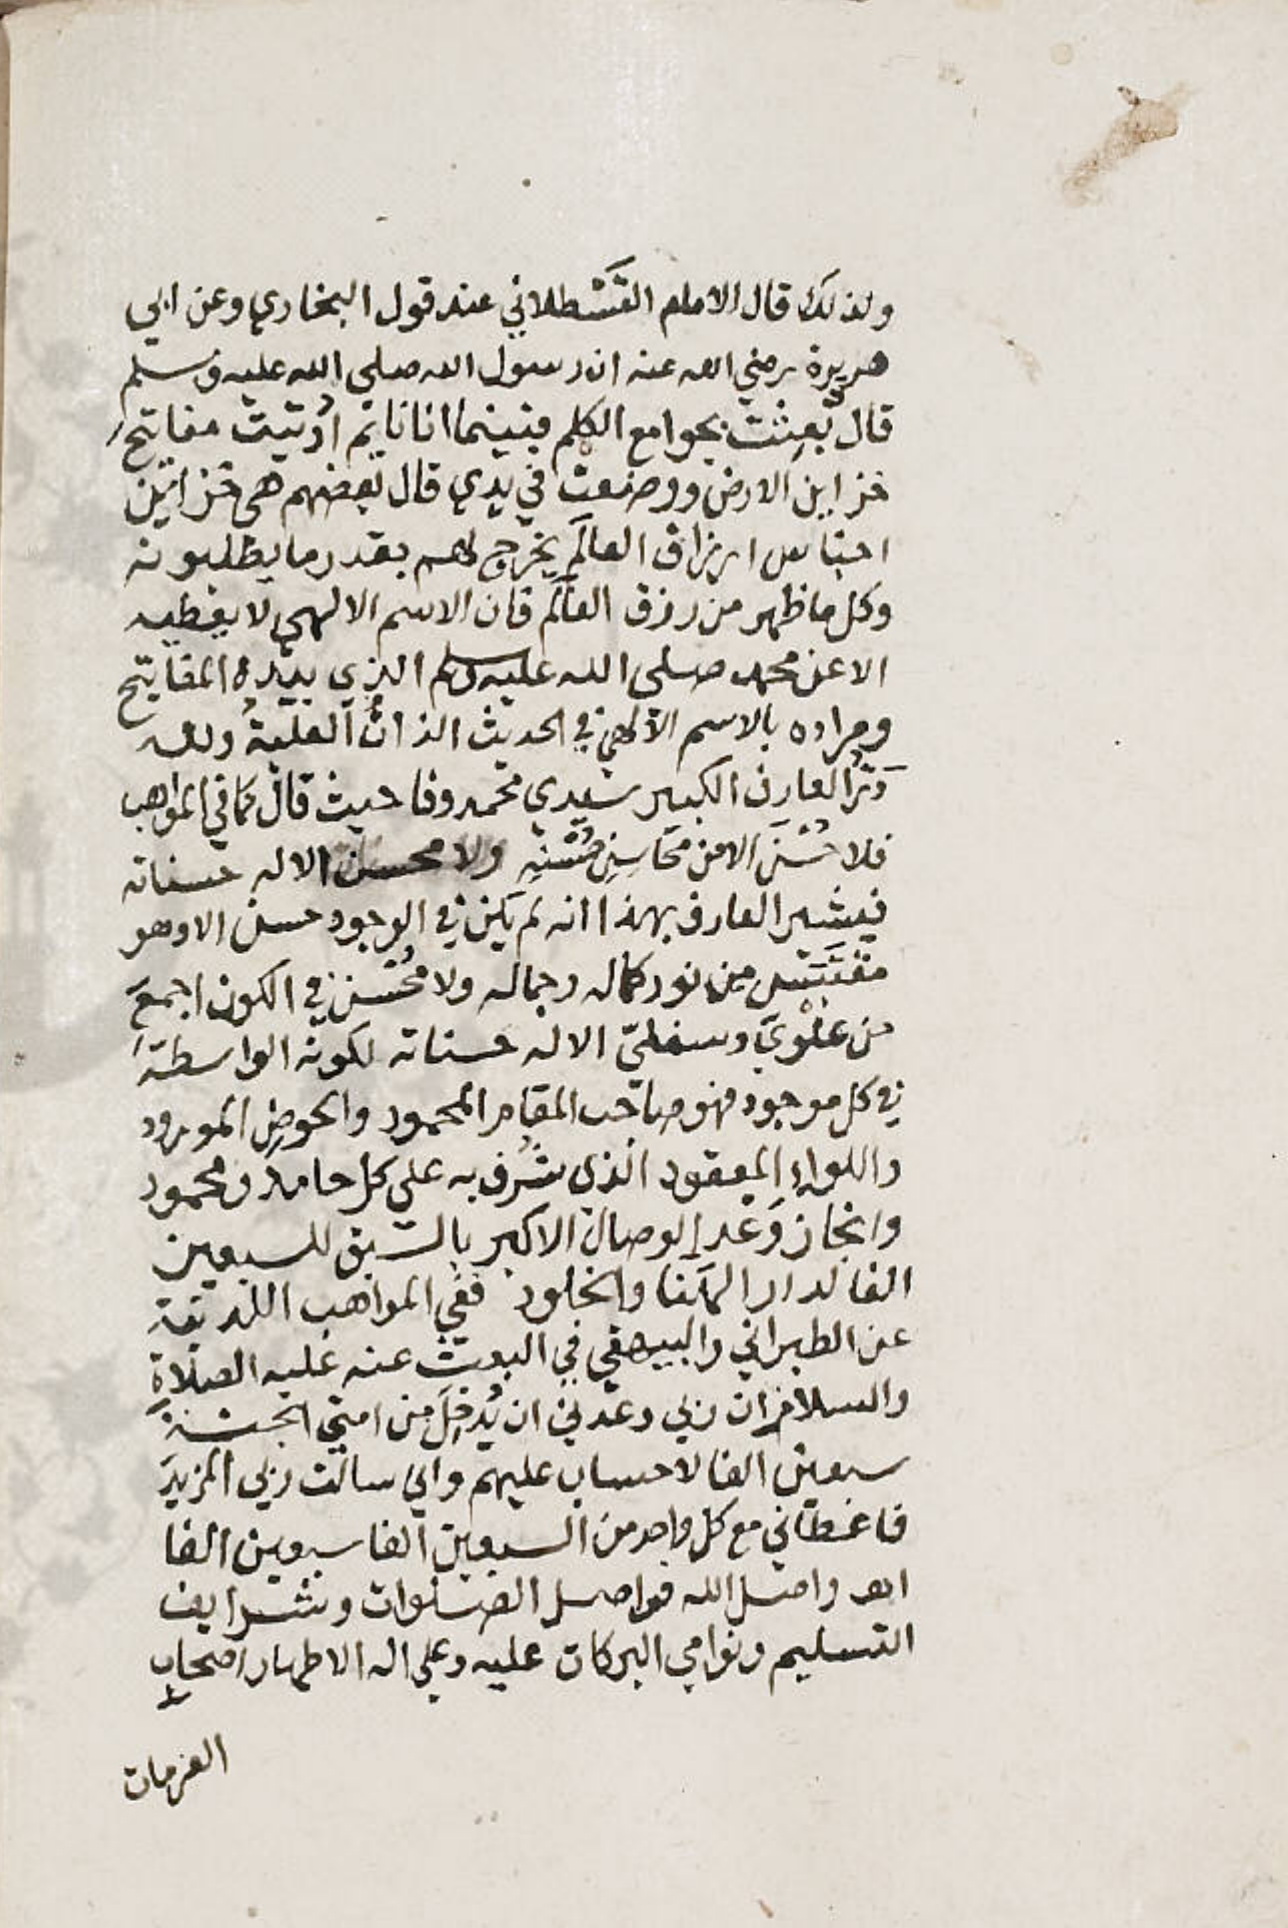 ولذلك قال الامام القسطلاني عند قول البخاري وعن ابي
هريرة رضي الله عنه ان رسول الله صلى الله عليه وسلم
قال بعثت بجوامع الكلم فبينما انا نايم اوتيت مفاتيح
خزاين الارض ووضعت في يدي قال بعضهم هي خزاين
اجناس ارزاق العالم يخرج لهم بقدر ما يطلبونه
وكل ما ظهر من رزق العالم فان الاسم الالهي لا يعطيه
الا عن محمد صلى الله عليه وسلم الذي بيده المفاتيح
ومراده بالاسم الالهي في الحديث الذات العلية ولله
در العارف الكبير سيدي محمد وفا حيث قال كما في المواهب
فلا حسن الا من محاسن حسنه ولا محسن الا له حسناته
فيشير العارف بهذا انه لم يكن في الوجود حسن الا وهو
مقتبس من نور كماله وجماله ولا محسن في الكون اجمع
من علوي وسفلي الا له حسناته لكونه الواسطة
في كل موجود فهو صاحب المقام المحمود والحوض المورود
واللواء المعقود الذي شرف به على كل حامد ومحمود
وانجاز وعد الوصال الاكبر بالسبق للسبعين
الفا لدار الهنا والخلود ففي المواهب اللدنية
عن الطبراني والبيهقي في البعث عنه عليه الصلاة
والسلام ان ربي وعدني ان يدخل من امتي الجنة
سبعين الفا لا حساب عليهم واني سالت ربي المزيد
فاعطاني مع كل واحد من السبعين الفا سبعين الفا
اهـ واصل الله فواصل الصلوات وشرايف
التسليم ونوامي البركات عليه وعلى اله الاطهار اصحاب
العزمات